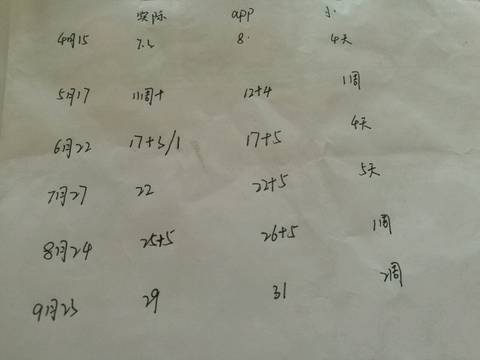 实际 app 小
4月15 7.5 8. 4天
5月17 11周+ 12+4 1周
6月22 17+3/1 17+5 4天
7月27 22 22+5 5天
8月24 25+5 26+5 1周
9月23 29 31 2周